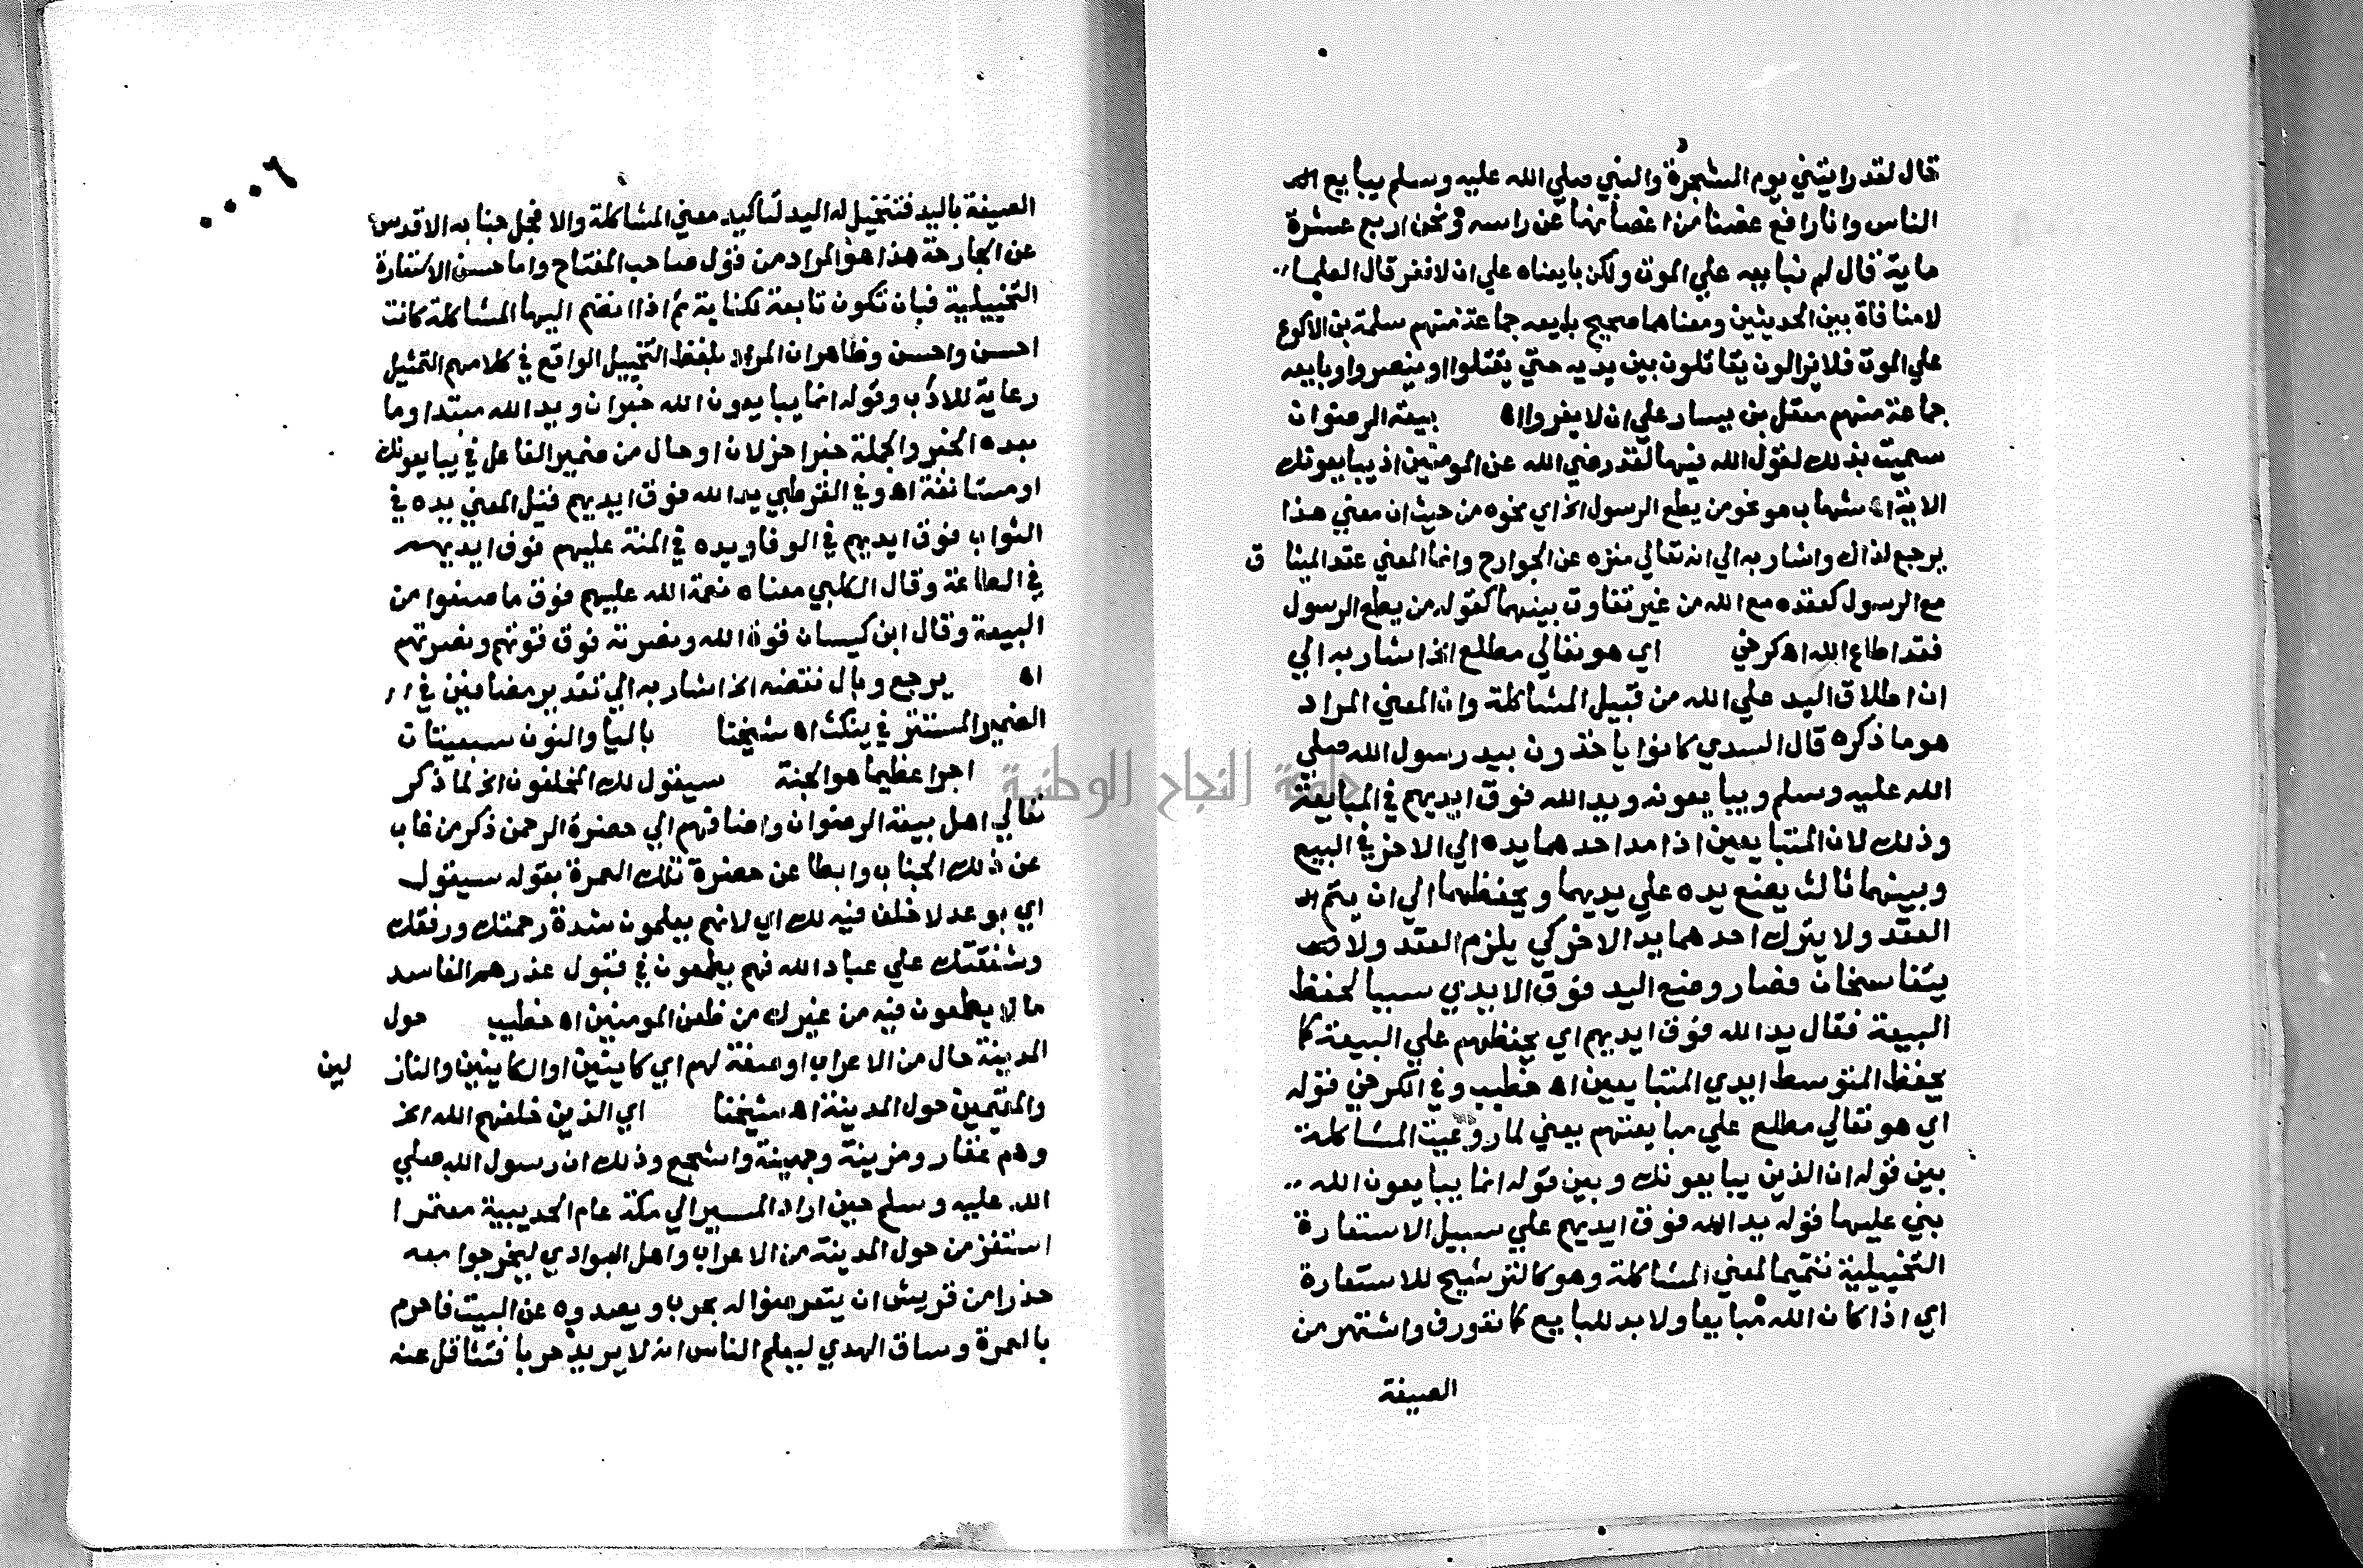 قال لقد رايتني يوم الشجرة والنبي صلي الله عليه وسلم يبايع
الناس وانا رافع غصنا من اغصانها عن راسه ونحن اربع عشرة
ماية قال لم نبايعه علي الموت ولكن بايعناه علي ان لا نفر قال العلما
لا منافاة بين الحديثين ومعناهما صحيح بايعه جماعة منهم سلمة بن الاكوع
علي الموت فلا يزالون يقاتلون بين يديه حتي يقتلوا او ينصروا وبايعه
جماعة منهم معقل بن يسار علي ان لا يفروا اه بيعة الرضوان
سميت بذلك لقول الله فيها لقد رضي الله عن المومنين اذ يبايعونك
الاية اه شهاب هو نحو من يطع الرسول الخ اي نحوه من حيث ان معني هذا
يرجع لذاك واشار به الي انه تعالي منزه عن الجوارح وانما المعني عقد الميثاق
مع الرسول كعقده مع الله من غير تفاوت بينهما كقوله من يطع الرسول
فقد اطاع الله اه كرخي اي هو تعالي مطلع الخ اشار به الي
ان اطلاق اليد علي الله من قبيل المشاكلة وان المعني المراد
هو ما ذكره قال السدي كانوا ياخذون بيد رسول الله صلي
الله عليه وسلم ويبايعونه ويد الله فوق ايديهم في المبايعة
وذلك لان المتبايعين اذا مد احدهما يده الي الاخر في البيع
وبينهما ثالث يضع يده علي يديهما ويحفظهما الي ان يتم
العقد ولا يترك احدهما يد الاخر كي يلزم العقد ولا
يتفاسخان فصار وضع اليد فوق الايدي سببا لحفظ
البيعة فقال يد الله فوق ايديهم اي يحفظهم علي البيعة كما
يحفظ المتوسط ايدي المتبايعين اه خطيب وفي الكرخي قوله
اي هو تعالي مطلع علي مبايعتهم يعني لما روعيت المشاكلة
بين قوله ان الذين يبايعونك وبين قوله انما يبايعون الله
بني عليها قوله يد الله فوق ايديهم علي سبيل الاستعارة
التخييلية تتميما لمعني المشاكلة وهو كالترشيح للاستعارة
اي اذا كان الله مبايعا ولا بد للبايع كما تقورف واشتهر من
الصيفة
٠٠٠٦
الصيفة باليد فتتخيل له اليد لتاكيد معني المشاكلة والا فجل جنابه الاقدس
عن الجارحة هذا هو المراد من قول صاحب المفتاح واما حسن الاستعارة
التخييلية فبان تكون تابعة لكناية ثم اذا انضم اليها المشاكلة كانت
احسن واحسن وظاهر ان المراد بلفظ التخييل الواقع في كلامهم التمثيل
رعاية للادب وقوله انما يبايعون الله خبر ان ويد الله مبتدا وما
بعده الخبر والجملة خبر اخر لان او حال من ضمير الفاعل في يبايعونك
او مستانفة اه وفي القرطبي يد الله فوق ايديهم قيل المعني يده في
الثواب فوق ايديهم في الوفا ويده في المنة عليهم فوق ايديهم
في الطاعة وقال الكلبي معناه نعمة الله عليهم فوق ما صنعوا من
البيعة وقال ابن كيسان قوة الله ونصرته فوق قوتهم ونصرتهم
اه يرجع وبال نقضه الخ اشار به الي تقدير مضافين في
الضمير المستتر في ينكث اه شيخنا باليا والنون سبعيتات
اجرا عظيما هو الجنة سيقول لك المخلفون الخ لما ذكر
تعالي اهل بيعة الرضوان واضافهم الي حضرة الرحمن ذكر من غاب
عن ذلك الجناب وابطا عن حضرة تلك العمرة بقوله سيقول
اي بوعد لا خلف فيه لك اي لانهم يعلمون شدة رحمتك ورفقك
وشفقتك علي عباد الله فهم يطمعون في قبول عذرهم الفاسد
ما لا يطمعون فيه من غيرك من ظعن المومنين اه خطيب حول
المدينة حال من الاعراب او صفة لهم اي كاينين او الكاينين والنازلين
والمقيمين حول المدينة اه شيخنا اي الذين خلفهم الله الخ
وهم غفار ومزينة وجهينة واشجع وذلك ان رسول الله صلي
الله عليه وسلم حين اراد المسير الي مكة عام الحديبية معتمرا
استنفر من حول المدينة من الاعراب واهل البوادي ليخرجوا معه
حذرا من قريش ان يتعرضوا له بحرب ويصدوه عن البيت فاحرم
بالعمرة وساق الهدي ليعلم الناس انه لا يريد حربا فتثاقل عنه
جامعة النجاح الوطنية